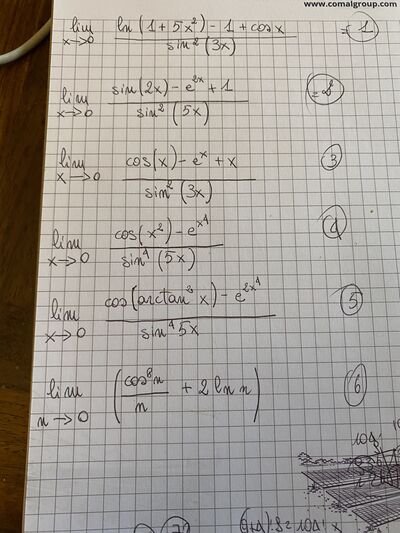 www.comalgroup.com
lim x→0 (ln(1+5x²) - 1 + cos x) / (sin²(3x)) = 1
lim x→0 (sin(2x) - e^(2x) + 1) / (sin²(5x)) = 2
lim x→0 (cos(x) - e^x + x) / (sin²(3x)) 3
lim x→0 (cos(x²) - e^(x⁴)) / (sin⁴(5x)) 4
lim x→0 (cos(arctan² x) - e^(2x⁴)) / (sin⁴ 5x) 5
lim n→0 (cos⁸n / n + 2 ln n) 6
104